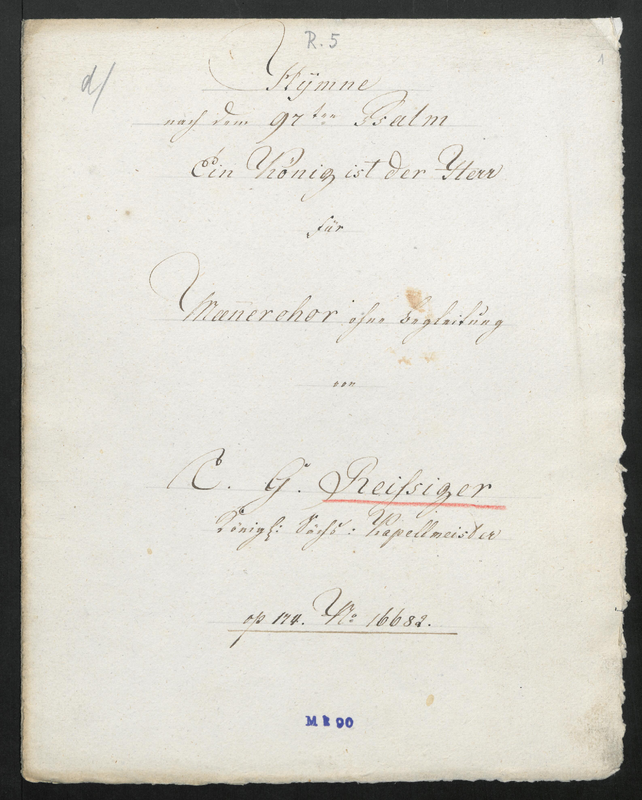 R. 5
1
d/
Hÿmne
nach dem 97ten Psalm
Ein König ist der Herr
für
Mæn̄erchor ohne Begleitung
von
C. G. Reiſsiger
Königl: Sächs: Kapellmeister
op 174. No 16682.
M k 90